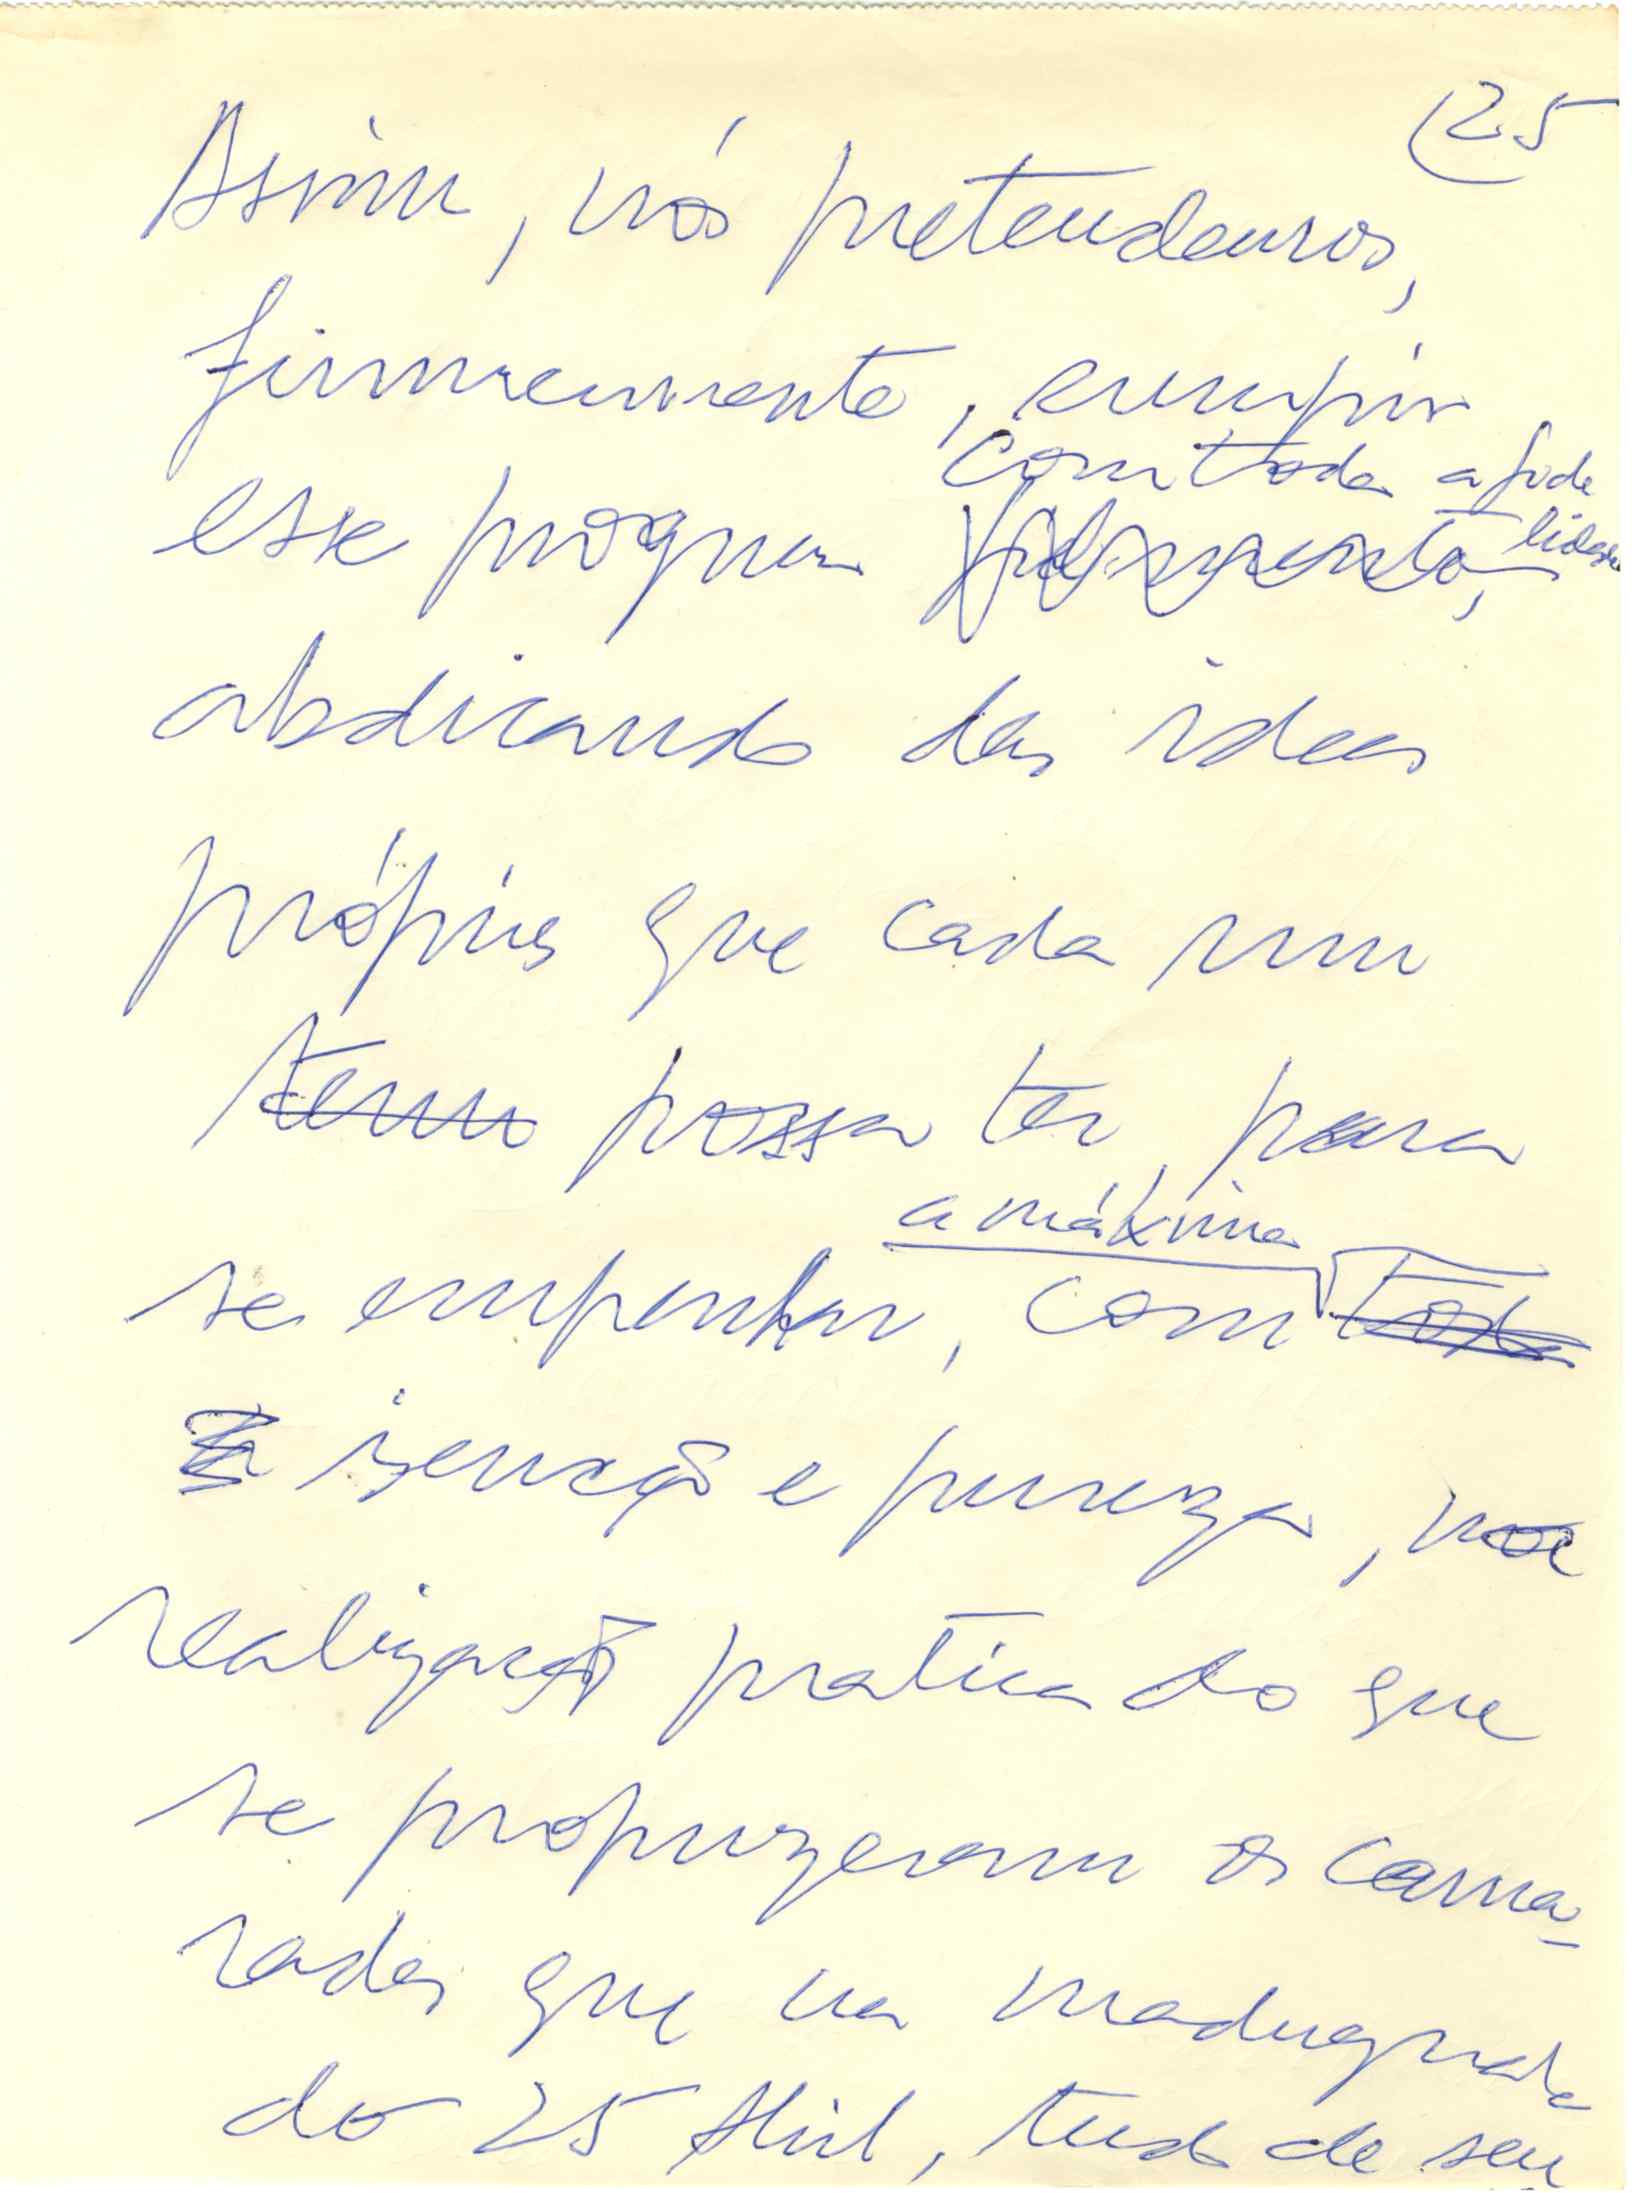 25
Assim, nós pretendemos,
firmemente, cumprir
com toda a fide
lidade
esse programa fielmente,
abdicando das ideas
próprias que cada um
tem possa ter, para
a máxima
se empenhar, com toda
isenção e pureza, na
realização pratica do que
se propuzeram os cama-
radas que na madrugada
do 25 Abril, tudo de seu